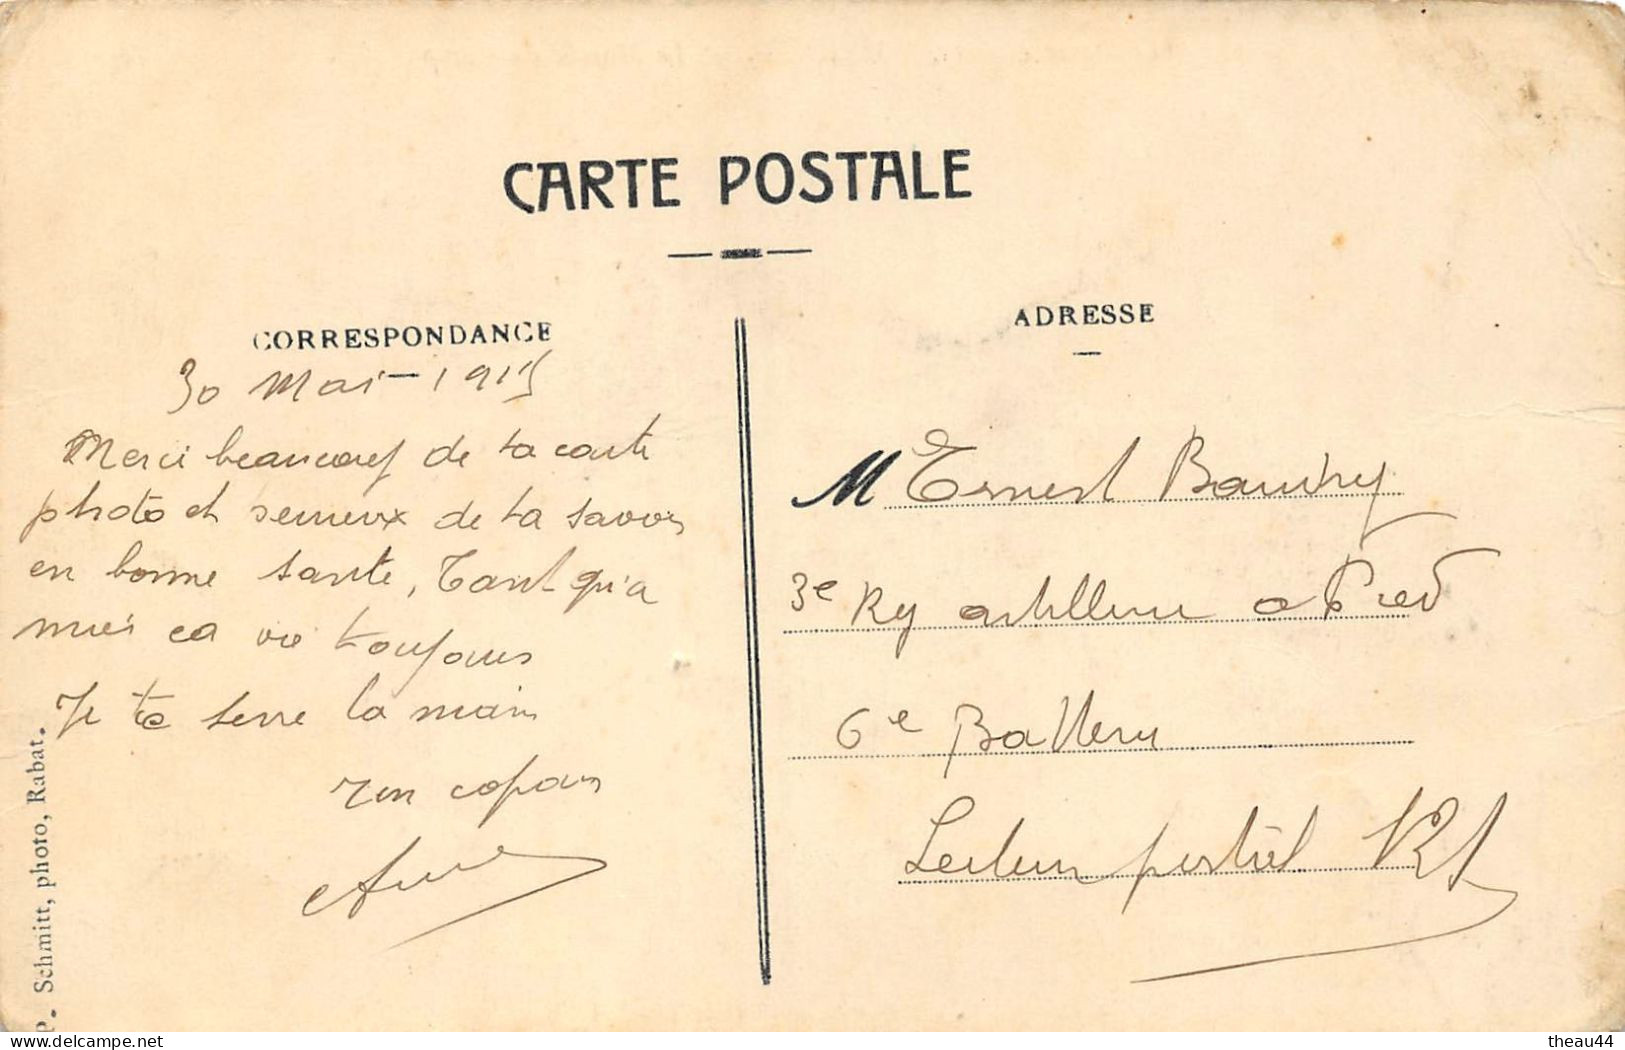 CARTE POSTALE
CORRESPONDANCE
30 Mai - 1915
Merci beaucoup de ta carte
photo et de ta savoir
en bonne sante, Tant qu'a
moi ca va toujours
Je te serre la main
Ton copain
ADRESSE
M Ernest Baudry
3e Rg artillerie a Pied
6e Batterie
Secteur postal 121
P. Schmitt, photo, Rabat.
delcampe.net
theau44